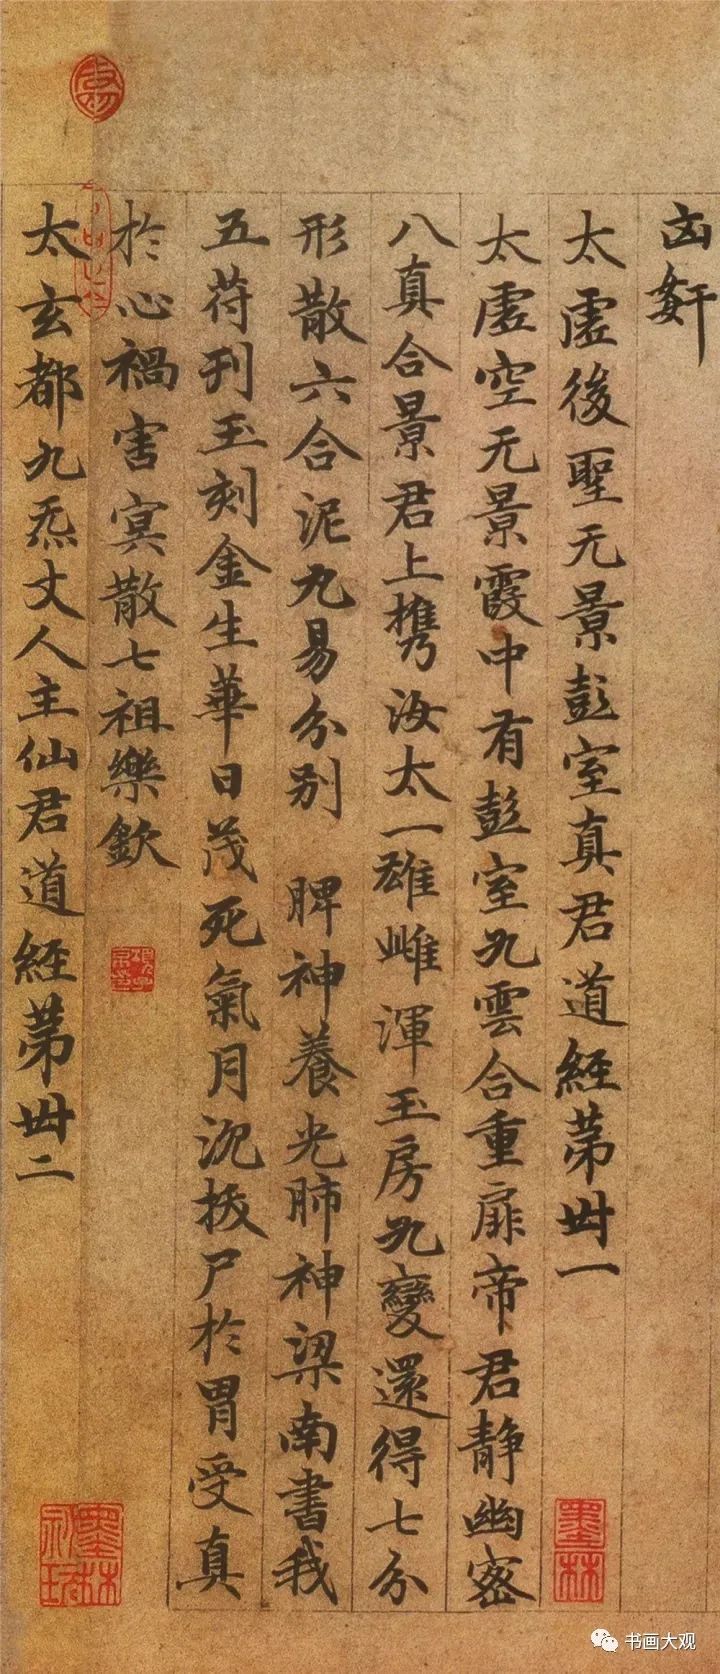 凶奸
太虛後聖无景彭室真君道經苐卌一
太虛空无景霞中有彭室九雲合重扉帝君靜幽密
八真合景君上携汝太一雄雌渾玉房九變還得七分
形散六合泥丸易分別 脾神養光肺神梁南書我
五苻刊玉刻金生華日茂死氣月沉拔尸於胃受真
於心禍害冥散七祖樂欽
太玄都九炁丈人主仙君道經苐卌二
墨林
墨林
书画大观